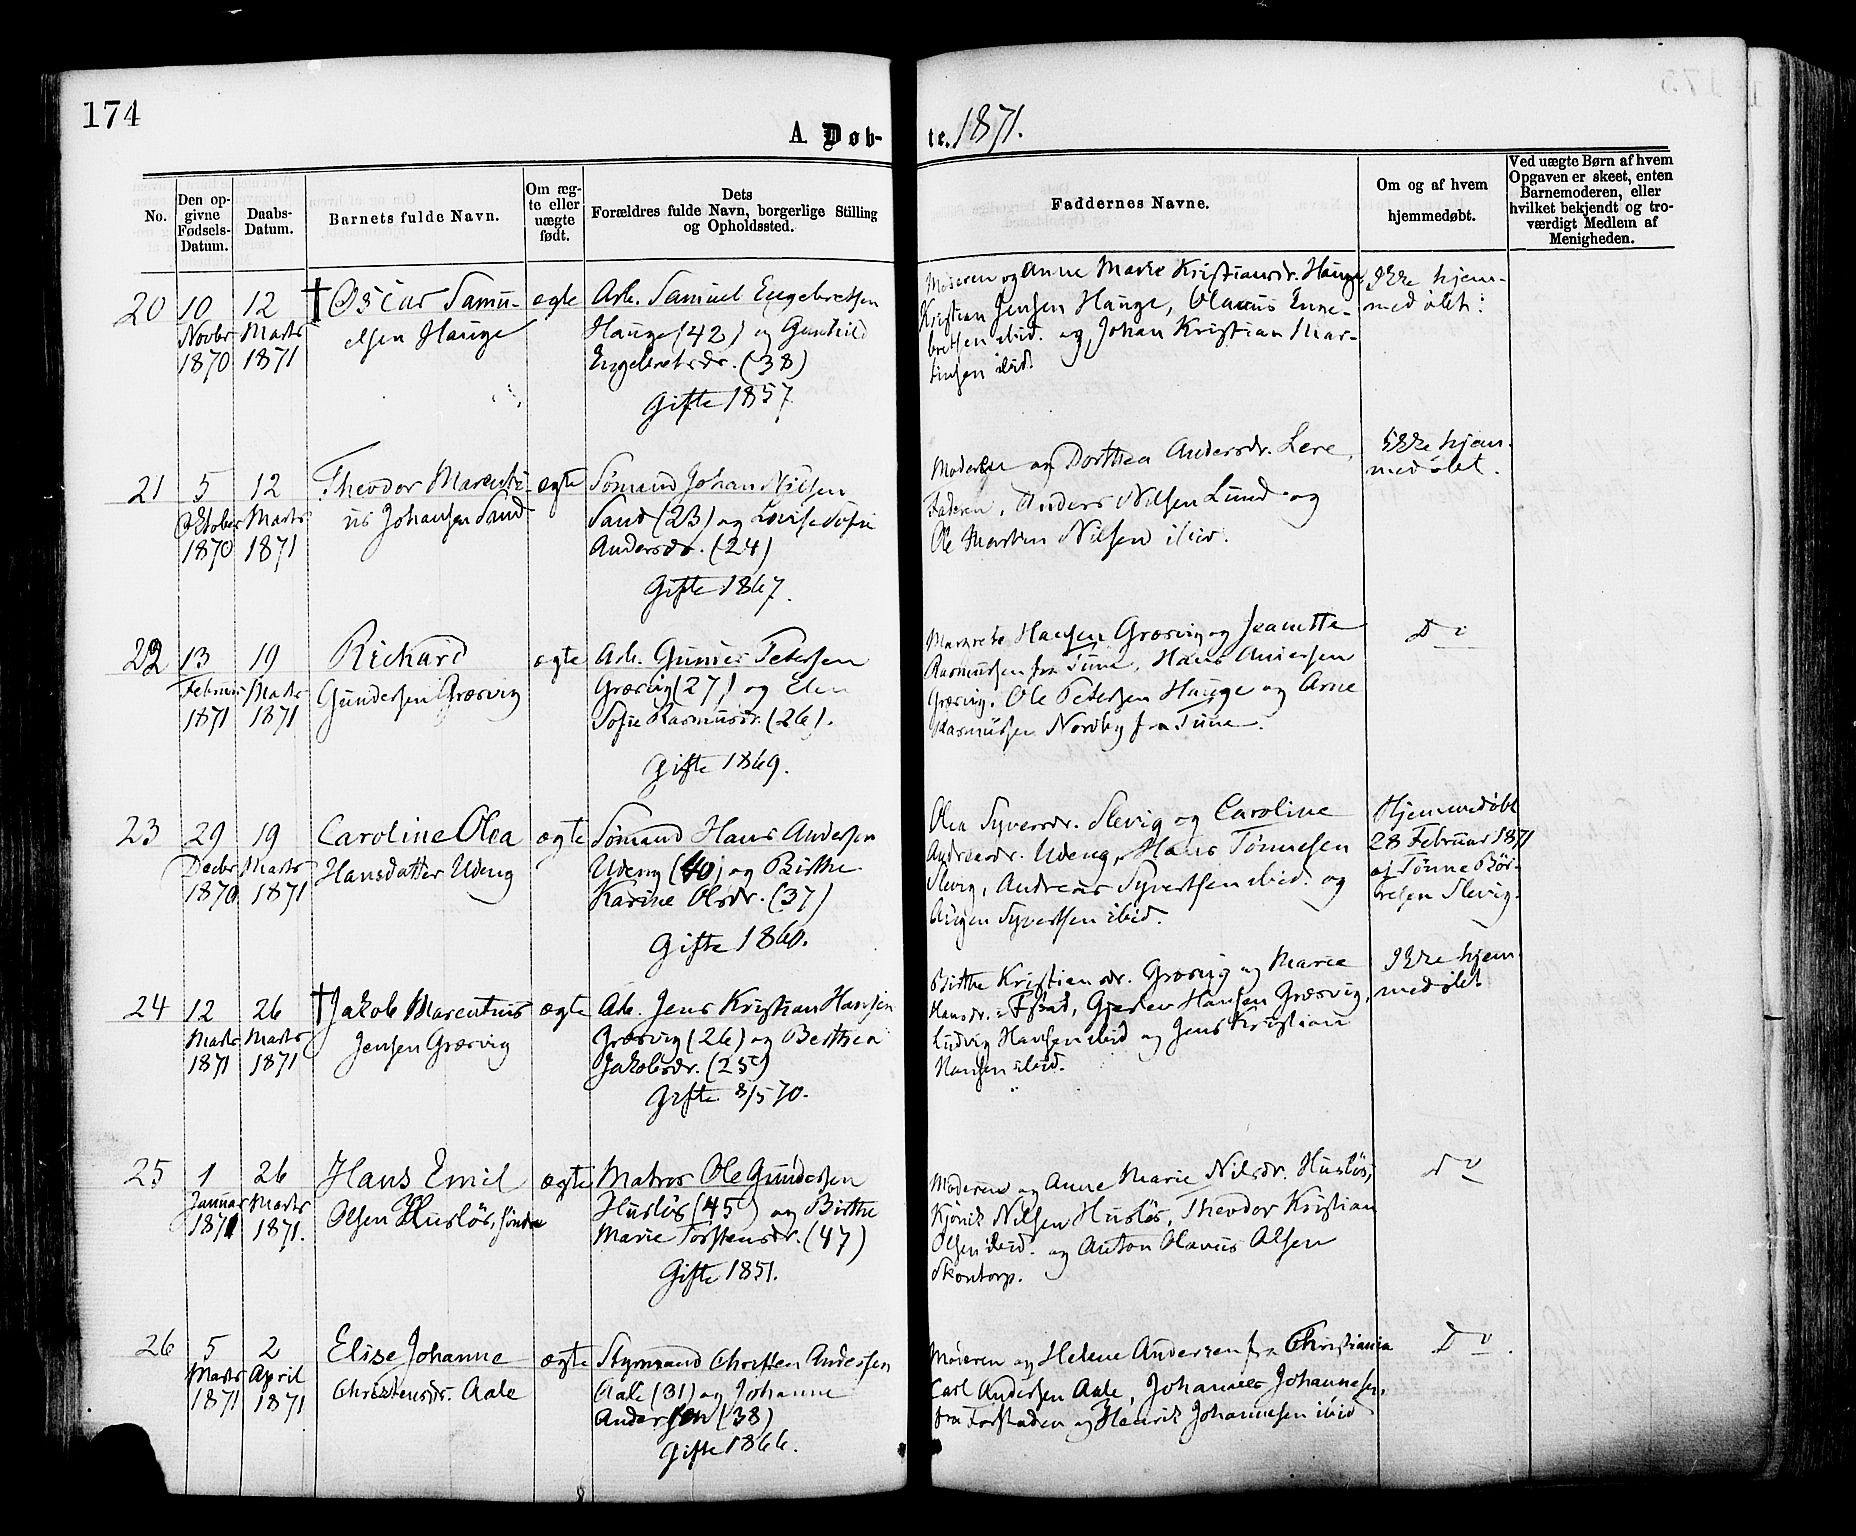 174
A. Døb-
te. 1871.
No.
Den op-
givne
Fødsels-
Datum.
Daabs-
Datum.
Barnets fulde Navn.
Om æg-
te eller
uægte
født.
Dets
Forældres fulde Navn, borgerlige Stilling
og Opholdssted.
Faddernes Navne.
Om og af hvem
hjemmedøbt.
Ved uægte Børn af hvem
Opgaven er skeet, enten
Barnemoderen, eller
hvilket bekjendt og tro-
værdigt Medlem af
Menigheden.
20
10
Novbr
1870
12
Marts
1871
† Oscar Samu-
elsen Hauge
ægte
Arb. Samuel Engebretsen
Hauge (42) og Gunhild
Engebretsdr. (38)
Gifte 1857
Moderen og Anne Marie Kristiansdr. Hauge,
Kristian Jensen Hauge, Olaus Enne-
bretsen ibid. og Johan Kristian Mar-
tinsen ibid.
Ikke hjem-
medøbt.
21
5
Oktober
1870
12
Marts
1871
Theodor Marenti-
us Johansen Sand
ægte
Sømand Johan Nilsen
Sand (23) og Lovise Sofie
Andersdr. (24)
Gifte 1867.
Moderen og Dorthea Andersdr. Lere,
Faderen, Anders Nilsen Lund og
Ole Martin Nilsen ibid.
Ikke hjem-
medøbt.
22
13
Februar
1871
19
Marts
1871
Richard
Gundersen Græsvig
ægte
Arb. Gunder Petersen
Græsvig (27) og Elen
Sofie Rasmusdr. (26).
Gifte 1869.
Margrete Hansen Græsvig og Jeanette
Rasmussen fra Tune, Hans Andersen
Græsvig, Ole Petersen Hauge og Arne
Rasmussen Nordby fra Tune.
Do
23
29
Decbr
1870
19
Marts
1871
Caroline Olea
Hansdatter Udeng
ægte
Sømand Hans Andersen
Udeng (40) og Birthe
Karine Olsdr. (37)
Gifte 1860.
Olea Syversdr. Slevig og Caroline
Andreasdr. Udeng, Hans Tønnesen
Slevig, Andreas Syvertsen ibid. og
Syvertsen ibid.
Hjemmedøbt
28 Februar 1871
af Tønne Bør-
resen Slevig.
24
12
Marts
1871
26
Marts
1871
† Jakob Marentius
Jensen Græsvig
ægte
Arb. Jens Kristian Hansen
Græsvig (26) og Berthea
Jakobsdr. (25)
Gifte 8/5 70.
Birthe Kristiansdr. Græsvig og Marie
Hansdr. Gjerlev Hansen Græsvig,
Ludvig Hansen ibid og Jens Kristian
Hansen ibid.
Ikke hjem-
medøbt
25
1
Januar
1871
26
Marts
1871.
Hans Emil
Olsen Husløs, søndre
ægte
Matros Ole Gundersen
Husløs (45) og Birthe
Marie Torstensdr. (47)
Gifte 1851.
Moderen og Anne Marie Nilsdr. Husløs,
Kjønik Nilsen Husløs, Theodor Kristian
Olsen ibid. og Anton Olavus Olsen
Skontorp.
do
26
5
Marts
1871
2
April
1871
Elise Johanne
Christensdr. Aale
ægte
Styrmand Christen Andersen
Aale (31) og Johanne
Andersen (38)
Gifte 1866.
Moderen og Helene Andersen fra Christiania
Carl Andersen Aale, Johannes Johannesen,
fra Forstaden og Henrik Johannesen ibid
Do.